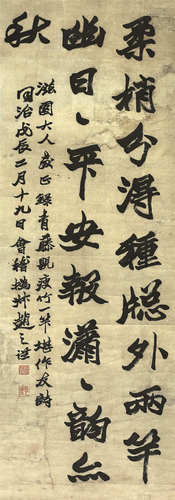 柔梢分得種牕外兩竿
幽日〻平安報瀟〻韻亦
秋
滋園大人鑒正錄青藤觀疫竹竿堪作友詩
同治戊辰二月十九日會稽撝叔趙之謙